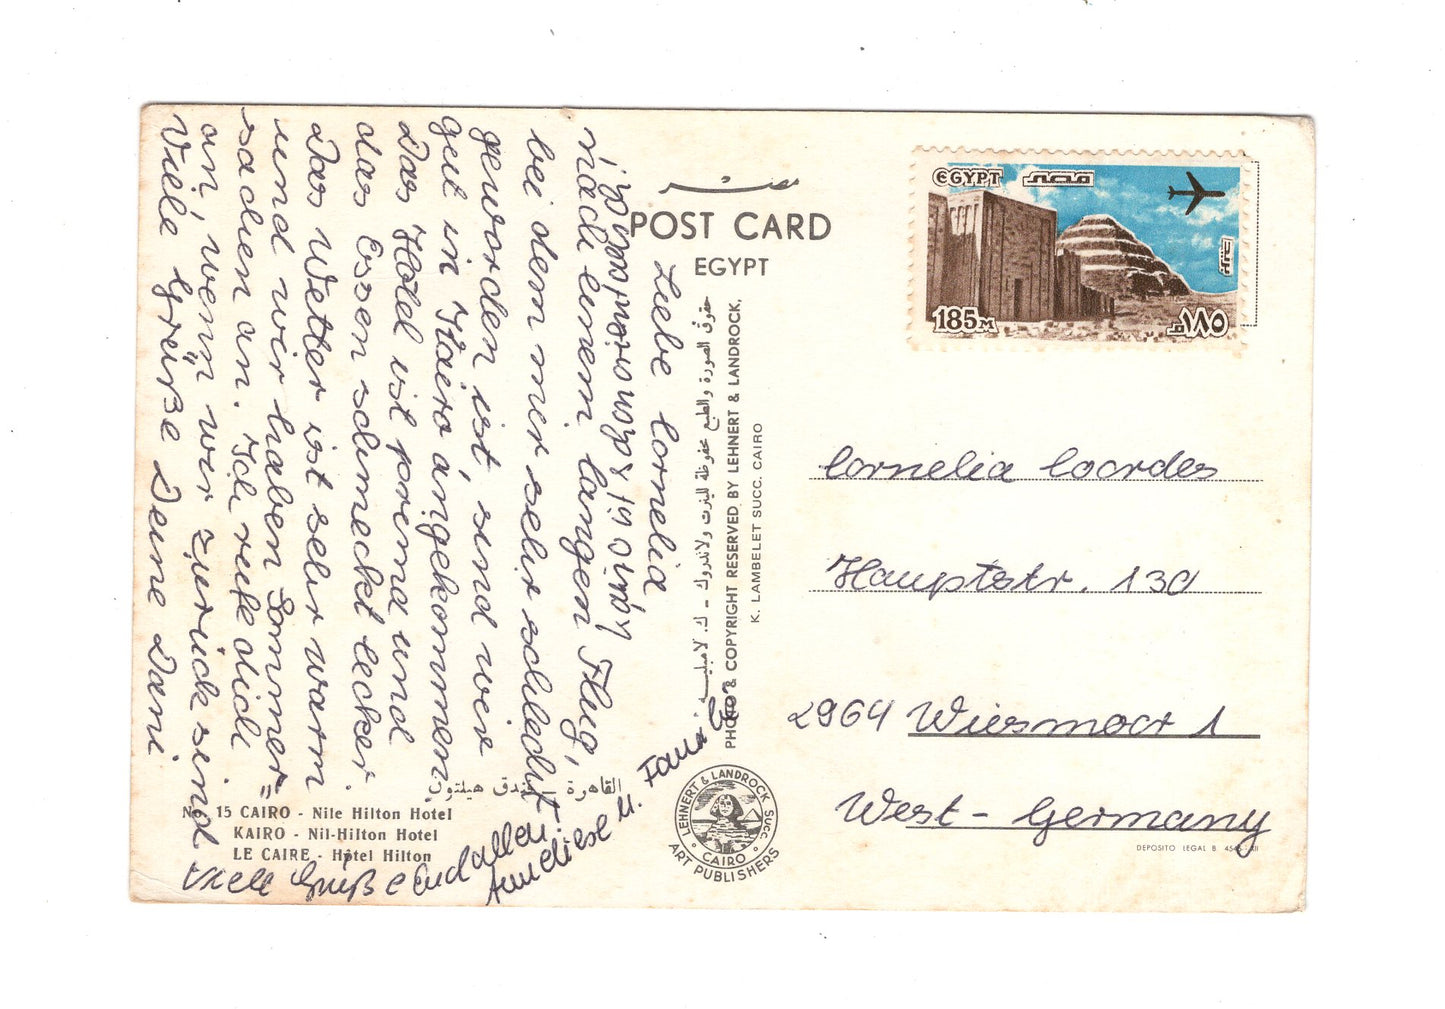 Liebe Cornelia
nach einem langen Flug,
bei dem mir sehr schlecht
geworden ist, sind wir
gut in Kairo angekommen
Das Hotel ist prima und
das Essen schmeckt lecker.
Das Wetter ist sehr warm
und wir haben Sommer=
sachen an. Ich rufe dich
an, wenn wir zurück sind
Viele Grüße Deine Dani
Viele Grüße Euch allen.
Anneliese u.
مصر
POST CARD
EGYPT
حقوق الصورة والطبع محفوظة للينرت ولاندروك - ك. لامبليه
PHOTO & COPYRIGHT RESERVED BY LEHNERT & LANDROCK,
K. LAMBELET SUCC. CAIRO
القاهرة - فندق هيلتون
No 15 CAIRO - Nile Hilton Hotel
KAIRO - Nil-Hilton Hotel
LE CAIRE - Hôtel Hilton
LEHNERT & LANDROCK SUCC. CAIRO
ART PUBLISHERS
EGYPT مصر
بريد جوى
185M ١٨٥م
Cornelia Coordes
Hauptstr. 130
2964 Wiesmoor 1
West-Germany
DEPOSITO LEGAL B